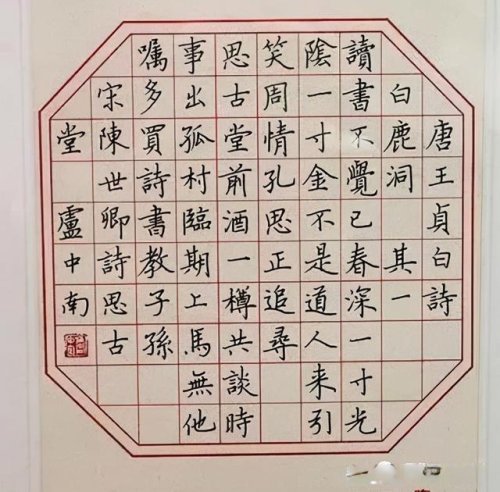 唐王貞白詩
白鹿洞 其一
讀書不覺已春深一寸光
陰一寸金不是道人来引
笑周情孔思正追尋
思古堂前酒一樽共談時
事出孤村臨期上馬無他
囑多買詩書教子孫
宋陳世卿詩思古
堂 盧中南